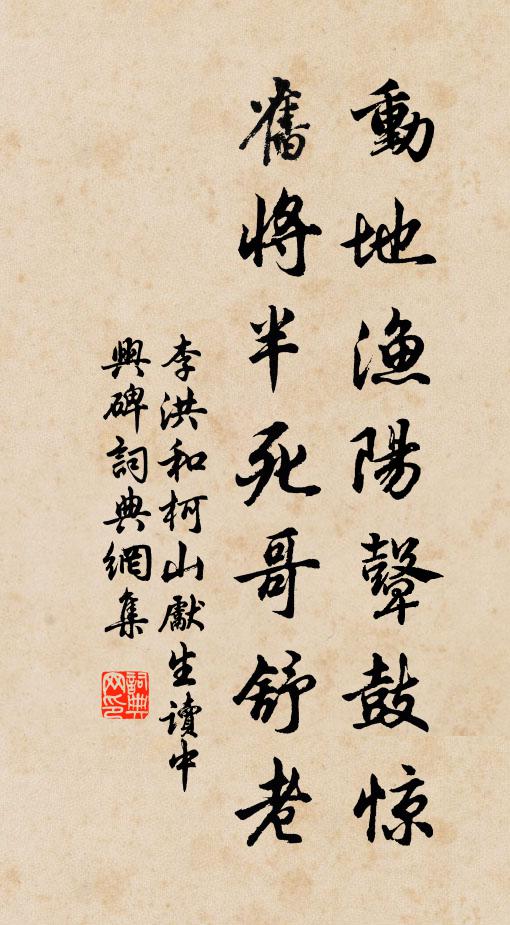 動地漁陽鼙鼓惊
舊將半死哥舒老
李洪和柯山獻生讀中
興碑詞典網集
詞典网印